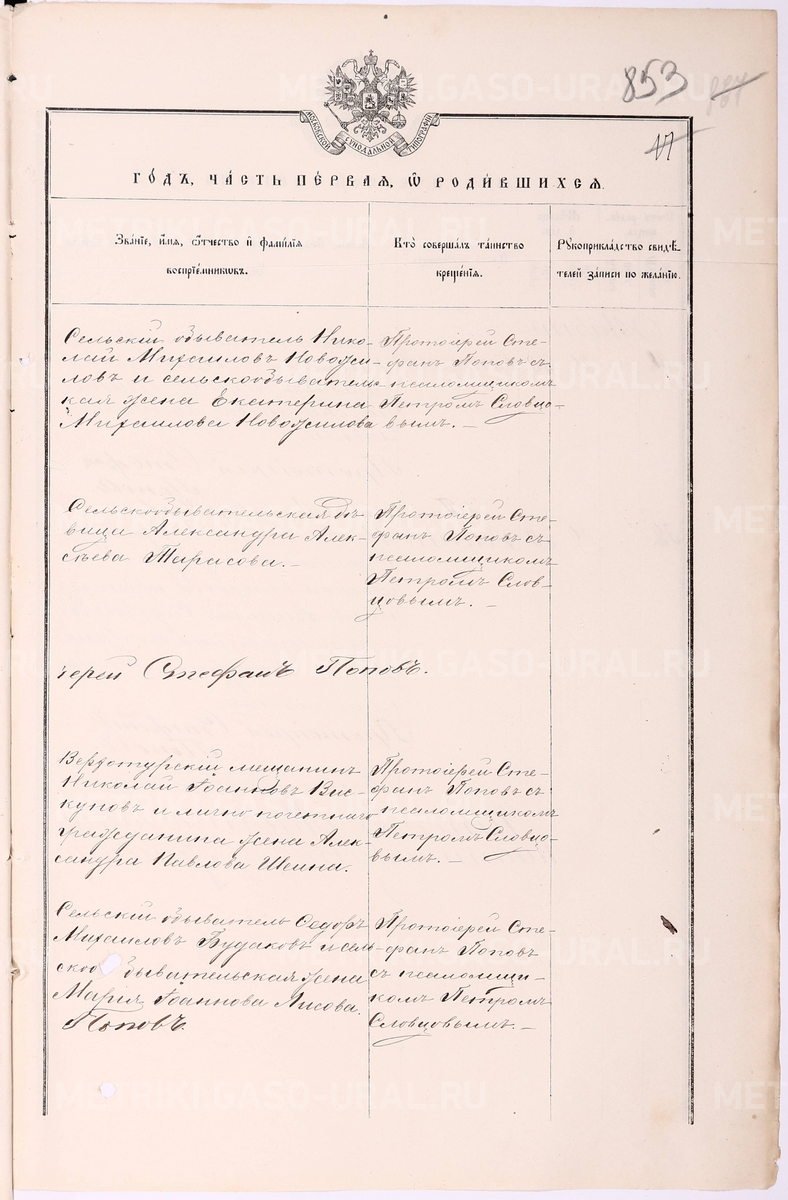 853
17
МОСКОВСКОЙ СѴНОДАЛЬНОЙ ТИПОГРАФІИ
ГО́ДЪ, ЧА́СТЬ ПЕ́РВАЯ, Ѽ РОДИ́ВШИХСЯ.
Зва́нїе, и҆́мя, ѻ҆́тчество и҆ фамѝлїѧ
воспрїе́мниковъ.
Кто̀ соверша́лъ та́инство
креще́нїѧ.
Рꙋкоприкла́дство свидѣ́-
телей за́писи по жела́нїю.
Сельскій обыватель Нико-
лай Михаиловъ Новожи-
ловъ и сельскообыватель
кая жена Екатерина
Михаилова Новожилова
Протоіерей Сте-
фанъ Поповъ съ
псаломщикомъ
Петромъ Словцо-
вымъ. –
Сельскообывательская дѣ-
вица Александра Алек-
сѣева Тарасова. –
Протоіерей Сте-
фанъ Поповъ съ
псаломщикомъ
Петромъ Слов-
цовымъ. –
іерей Стефанъ Поповъ.
Верхотурскій мещанинъ
Николай Іоанновъ Вис-
куновъ и лично почетнаго
гражданина жена Алек-
сандра Павлова Шеина.
Протоіерей Сте-
фанъ Поповъ съ
псаломщикомъ
Петромъ Словцо-
вымъ. –
Сельскій обыватель Ѳедоръ
Михаиловъ Будаковъ и сель-
скообывательская жена
Марія Іоаннова Лисова.
Поповъ.
Протоіерей Сте-
фанъ Поповъ
съ псаломщи-
комъ Петромъ
Словцовымъ. –
METRIKI.GASO-URAL.RU